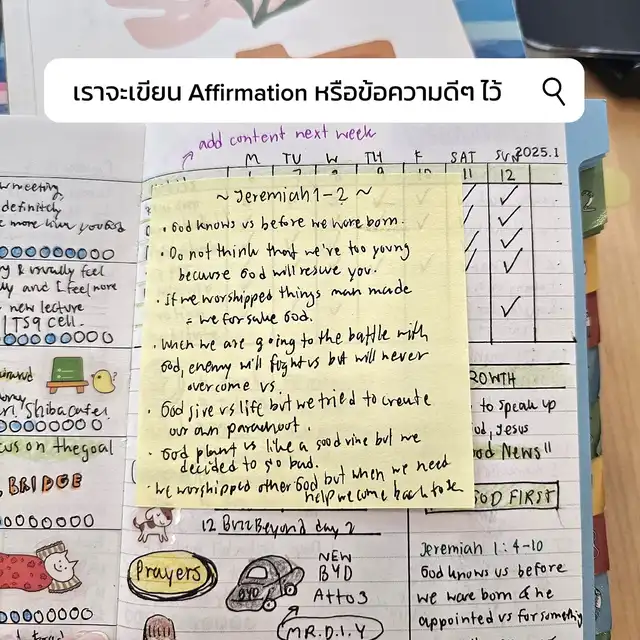 เราจะเขียน Affirmation หรือข้อความดีๆ ไว้
add content next week
M TU W TH F SAT SUN 2025.1
11 12
~ Jeremiah 1-2 ~
• God knows us before we were born.
• Do not think that we're too young
because God will rescue you.
• If we worshipped things man made
= we forsake God.
• When we are going to the battle with
God, enemy will fight us but will never
overcome us.
• God give us life but we tried to create
our own
• God plant us like a good vine but we
decided to go bad.
• We worshipped other God but when we need
help we come back to
meeting,
definitely
more than
& usually feel
and I feel more
new lecture
TS9 CELL.
Shiba Cafe!
on the goal
BRIDGE
ROWTH
to speak up
Jesus
News"
GOD FIRST
12 Buzz Beyond day 2
Prayers
BYD
NEW
BYD
Atto3
MR.D.I.Y
Jeremiah 1:4-10
God knows us before
we were born & he
appointed us for something